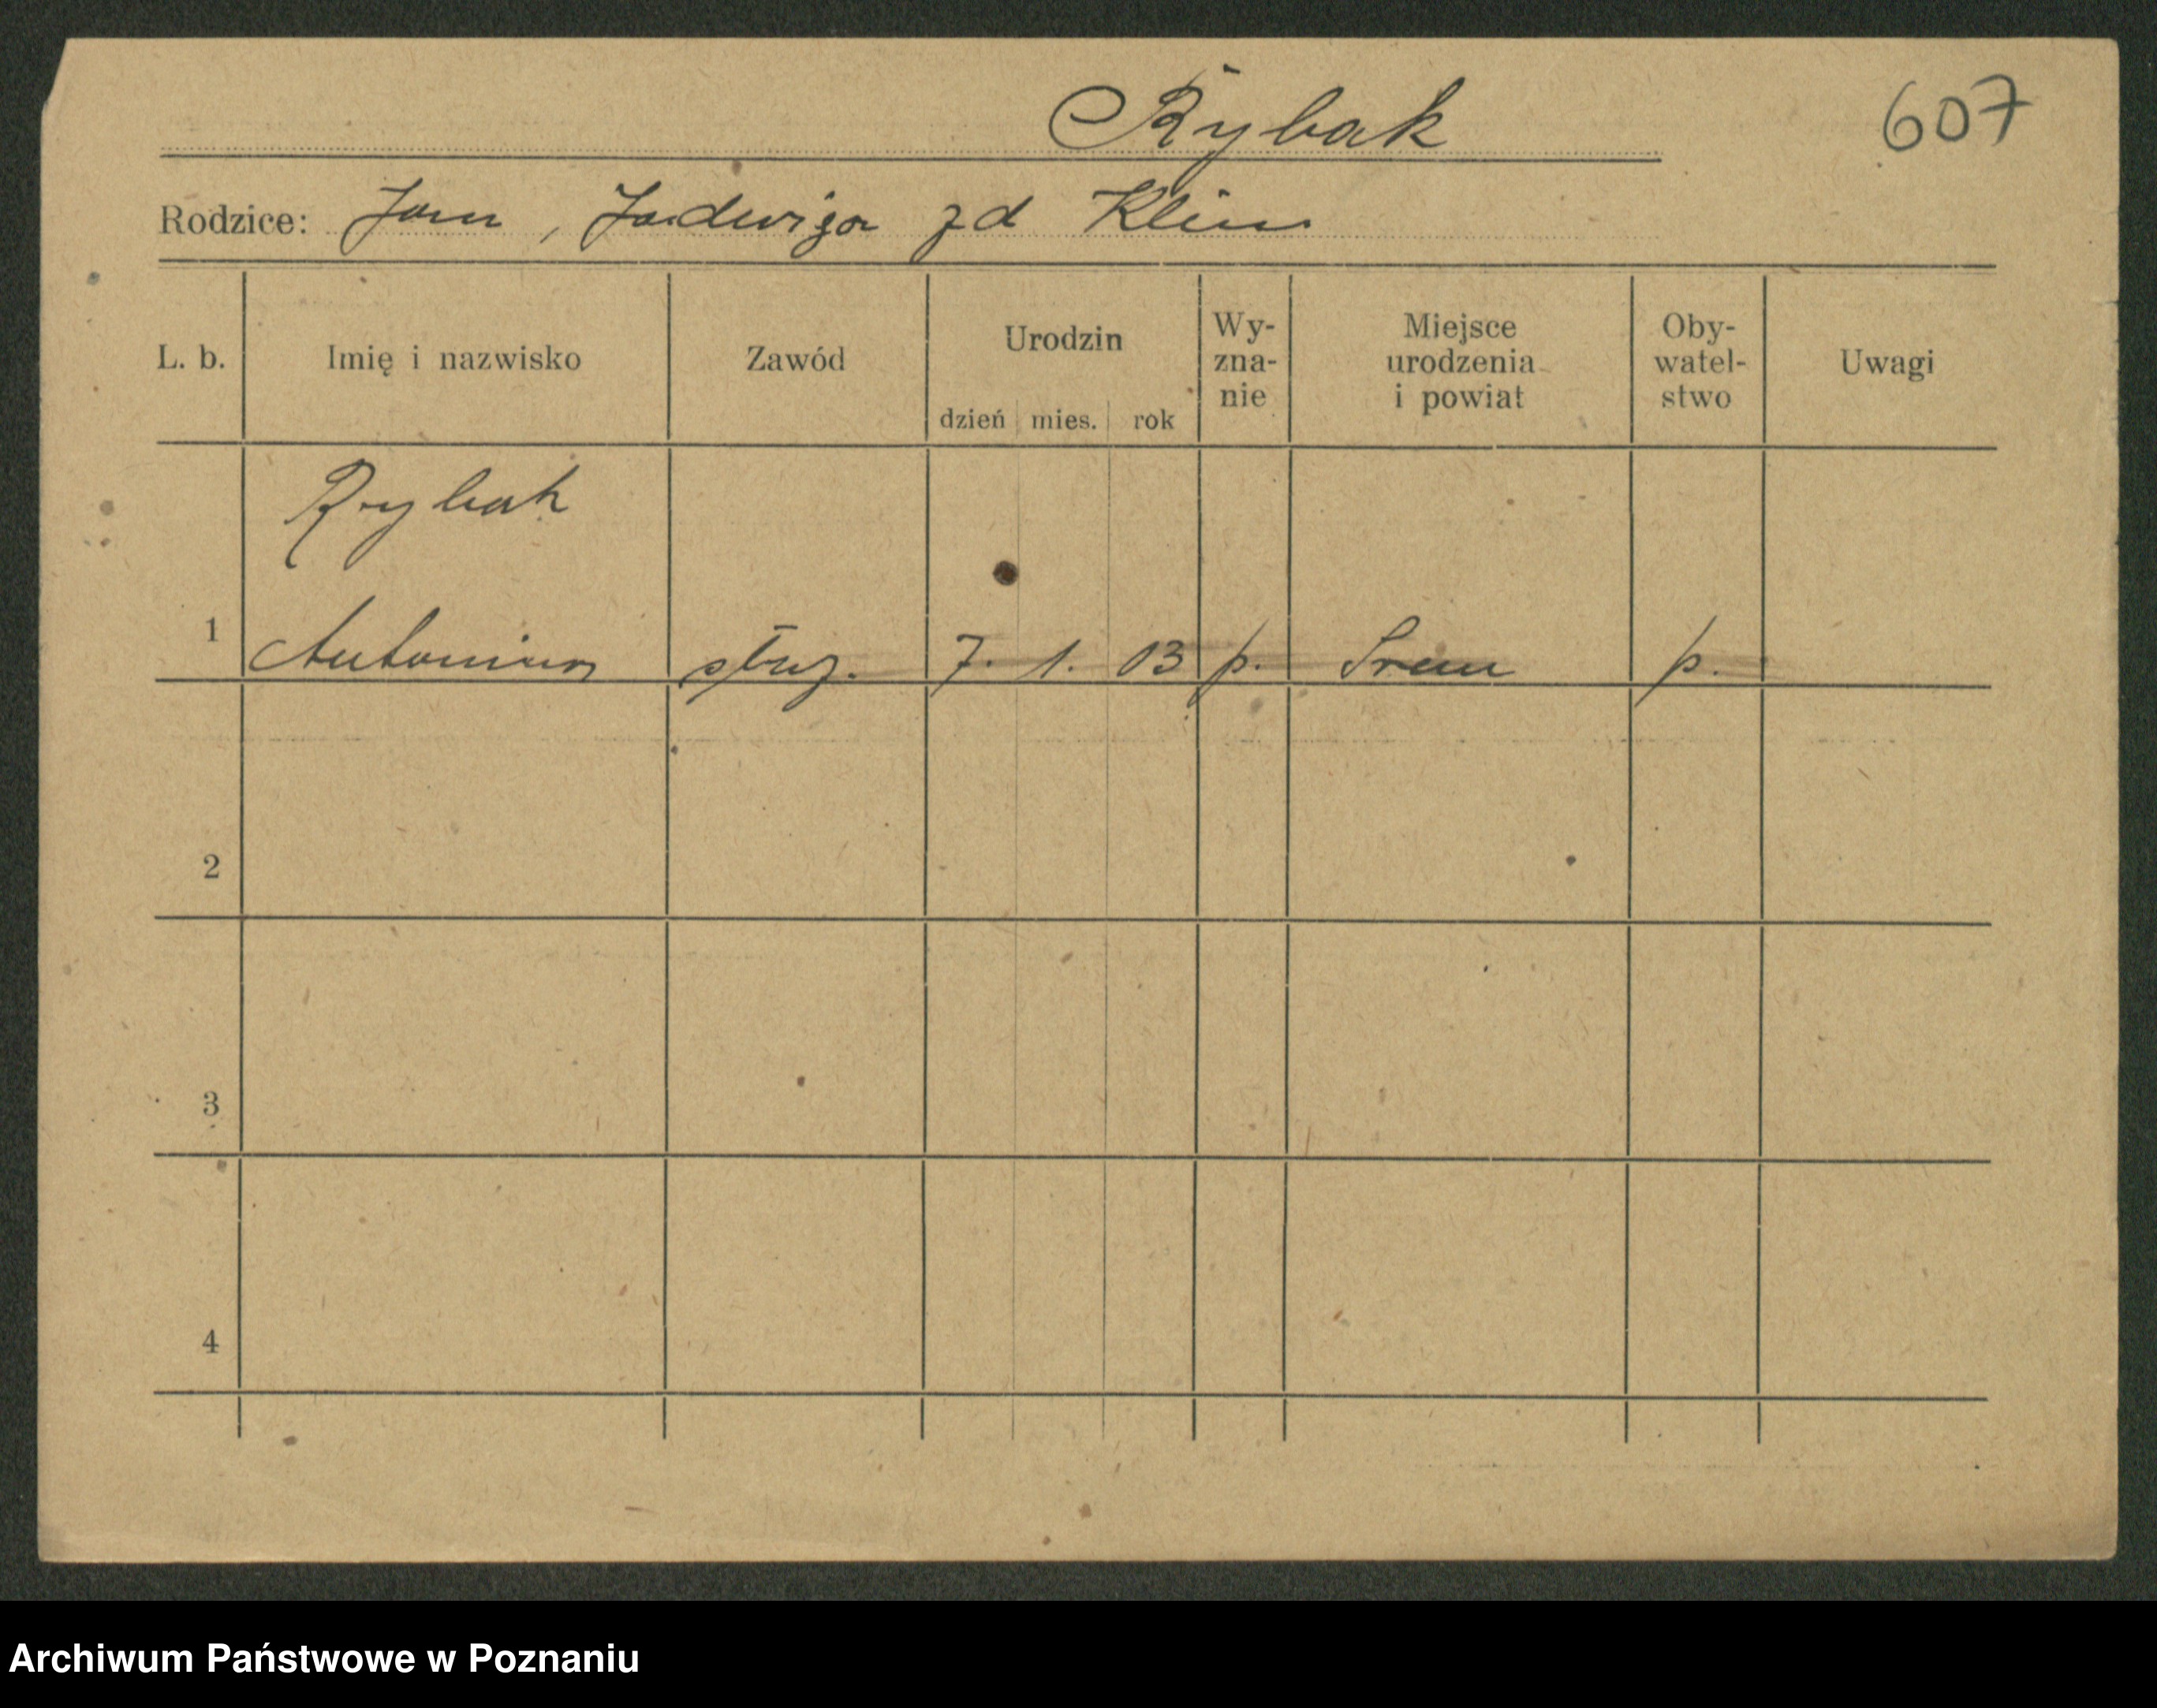 Rybak
607
Rodzice: Jan, Jadwiga zd Klim
L. b.
Imię i nazwisko
Zawód
Urodzin
dzień mies. rok
Wy-
zna-
nie
Miejsce
urodzenia
i powiat
Oby-
watel-
stwo
Uwagi
Rybak
1 Antonina służ. 7. 1. 03 p. Srem p.
2
3
4
Archiwum Państwowe w Poznaniu